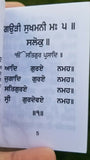 ਗਉੜੀ ਸੁਖਮਨੀ ਮਃ ੫ ॥
ਸਲੋਕੁ ॥
ੴ ਸਤਿਗੁਰ ਪ੍ਰਸਾਦਿ ॥
ਆਦਿ ਗੁਰਏ ਨਮਹ ॥
ਜੁਗਾਦਿ ਗੁਰਏ ਨਮਹ ॥
ਸਤਿਗੁਰਏ ਨਮਹ ॥
ਸ੍ਰੀ ਗੁਰਦੇਵਏ ਨਮਹ ॥
॥੧॥
5